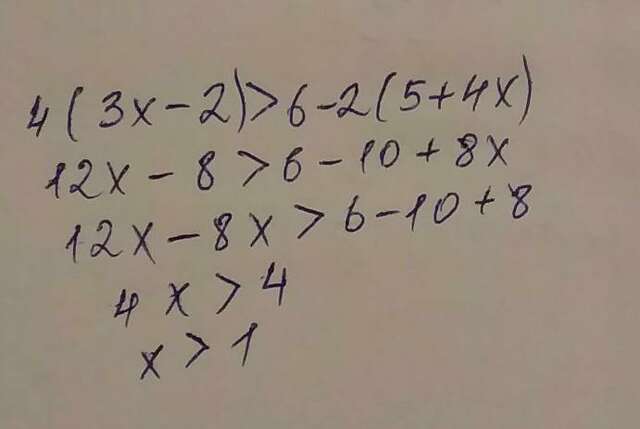 4(3x-2)>6-2(5+4x)
12x-8>6-10+8x
12x-8x>6-10+8
4x>4
x>1